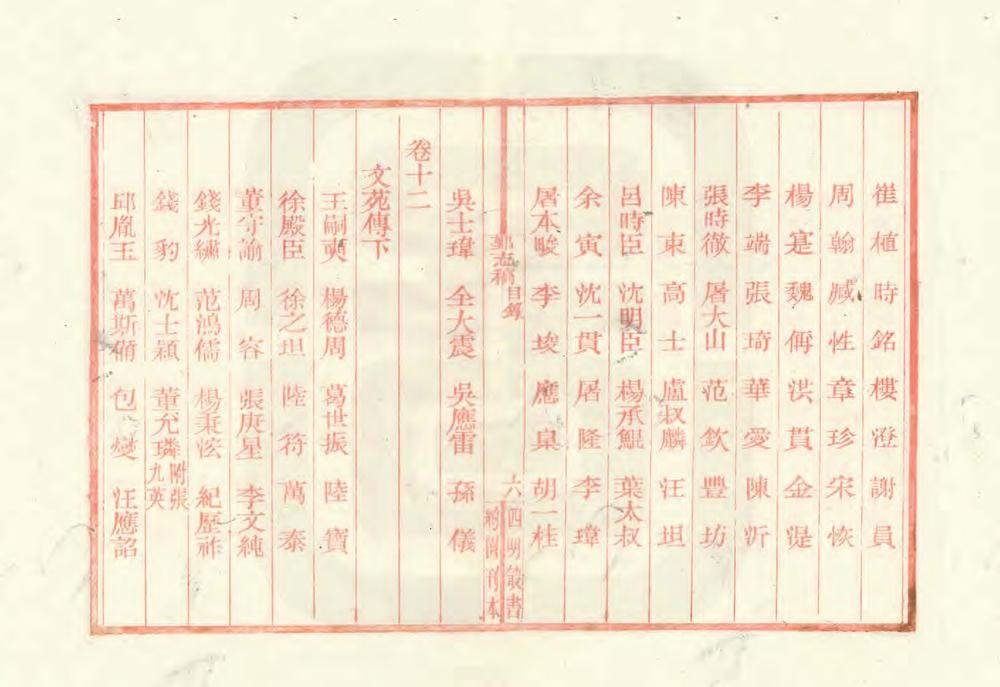 崔植 時銘 樓澄 謝員
周翰 臧性 章珍 宋恢
楊寔 魏偁 洪貫 金湜
李端 張琦 華愛 陳沂
張時徹 屠大山 范欽 豐坊
陳束 高士 盧叔麟 汪坦
呂時臣 沈明臣 楊承鯤 葉太叔
余寅 沈一貫 屠隆 李瑋
屠本畯 李埈 應臬 胡一桂
鄞志稿 目錄 六 四明叢書
約園刊本
吳士瑋 全大震 吳應雷 孫儀
卷十二
文苑傳下
王嗣奭 楊德周 葛世振 陸寶
徐殿臣 徐之垣 陸符 萬泰
董守諭 周容 張庚星 李文純
錢光繡 范鴻儒 楊秉浤 紀歷祚
錢豹 沈士穎 董允璘 附張九英
邱胤玉 萬斯備 包燮 汪應詔